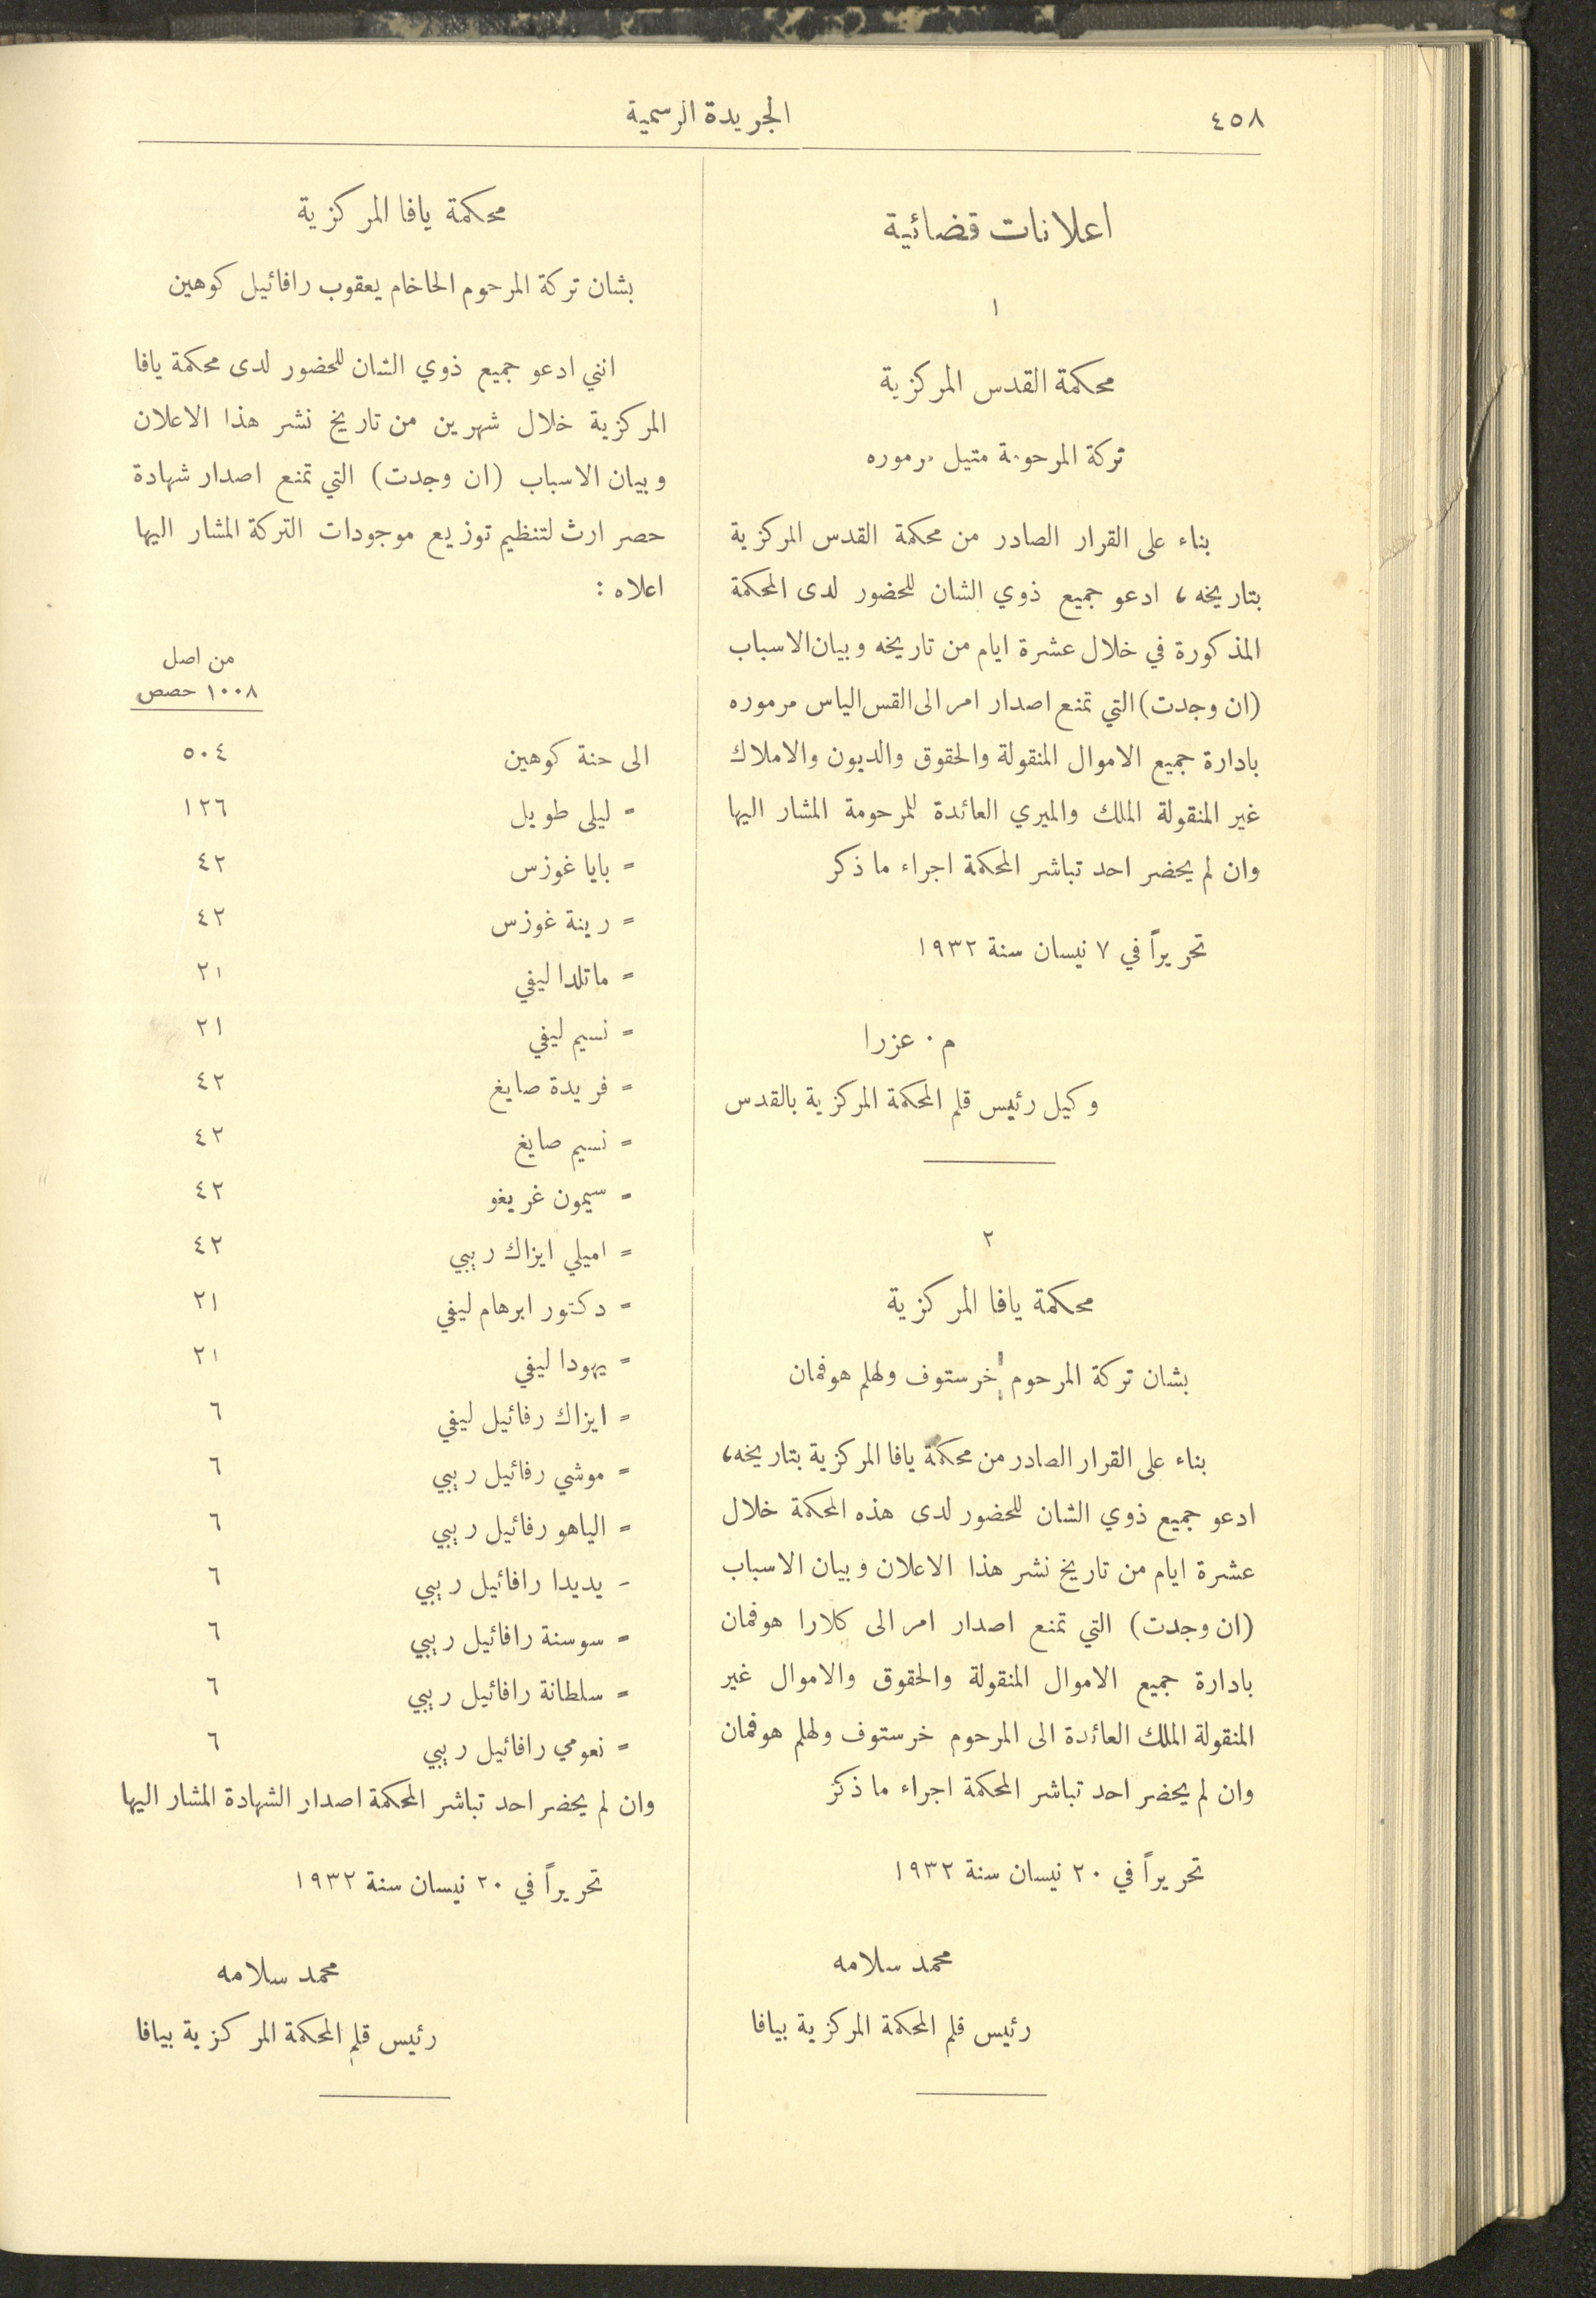 ٤٥٨
الجريدة الرسمية
اعلانات قضائية
١
محكمة القدس المركزية
تركة المرحومة متيل مرموره
بناء على القرار الصادر من محكمة القدس المركزية
بتاريخه، ادعو جميع ذوي الشان للحضور لدى المحكمة
المذكورة في خلال عشرة ايام من تاريخه وبيان الاسباب
(ان وجدت) التي تمنع اصدار امر الى القس الياس مرموره
بادارة جميع الاموال المنقولة والحقوق والديون والاملاك
غير المنقولة الملك والميري العائدة للمرحومة المشار اليها
وان لم يحضر احد تباشر المحكمة اجراء ما ذكر
تحريراً في ٧ نيسان سنة ١٩٣٢
م. عزرا
وكيل رئيس قلم المحكمة المركزية بالقدس
٢
محكمة يافا المركزية
بشان تركة المرحوم خرستوف ولهلم هوفمان
بناء على القرار الصادر من محكمة يافا المركزية بتاريخه،
ادعو جميع ذوي الشان للحضور لدى هذه المحكمة خلال
عشرة ايام من تاريخ نشر هذا الاعلان وبيان الاسباب
(ان وجدت) التي تمنع اصدار امر الى كلارا هوفمان
بادارة جميع الاموال المنقولة والحقوق والاموال غير
المنقولة الملك العائدة الى المرحوم خرستوف ولهلم هوفمان
وان لم يحضر احد تباشر المحكمة اجراء ما ذكر
تحريراً في ٢٠ نيسان سنة ١٩٣٢
محمد سلامه
رئيس قلم المحكمة المركزية بيافا
محكمة يافا المركزية
بشان تركة المرحوم الحاخام يعقوب رافائيل كوهين
انني ادعو جميع ذوي الشان للحضور لدى محكمة يافا
المركزية خلال شهرين من تاريخ نشر هذا الاعلان
وبيان الاسباب (ان وجدت) التي تمنع اصدار شهادة
حصر ارث لتنظيم توزيع موجودات التركة المشار اليها
اعلاه :
من اصل
١٠٠٨ حصص
الى حنة كوهين ٥٠٤
= ليلى طويل ١٢٦
= بايا غوزس ٤٢
= رينة غوزس ٤٢
= ماتلدا ليفي ٢١
= نسيم ليفي ٢١
= فريدة صايغ ٤٢
= نسيم صايغ ٤٢
= سيمون غريغو ٤٢
= اميلي ايزاك ريبي ٤٢
= دكتور ابرهام ليفي ٢١
= يهودا ليفي ٢١
= ايزاك رفائيل ليفي ٦
= موشي رفائيل ريبي ٦
= الياهو رفائيل ريبي ٦
- يديدا رافائيل ريبي ٦
= سوسنة رافائيل ريبي ٦
= سلطانة رافائيل ريبي ٦
= نعومي رافائيل ريبي ٦
وان لم يحضر احد تباشر المحكمة اصدار الشهادة المشار اليها
تحريراً في ٢٠ نيسان سنة ١٩٣٢
محمد سلامه
رئيس قلم المحكمة المركزية بيافا